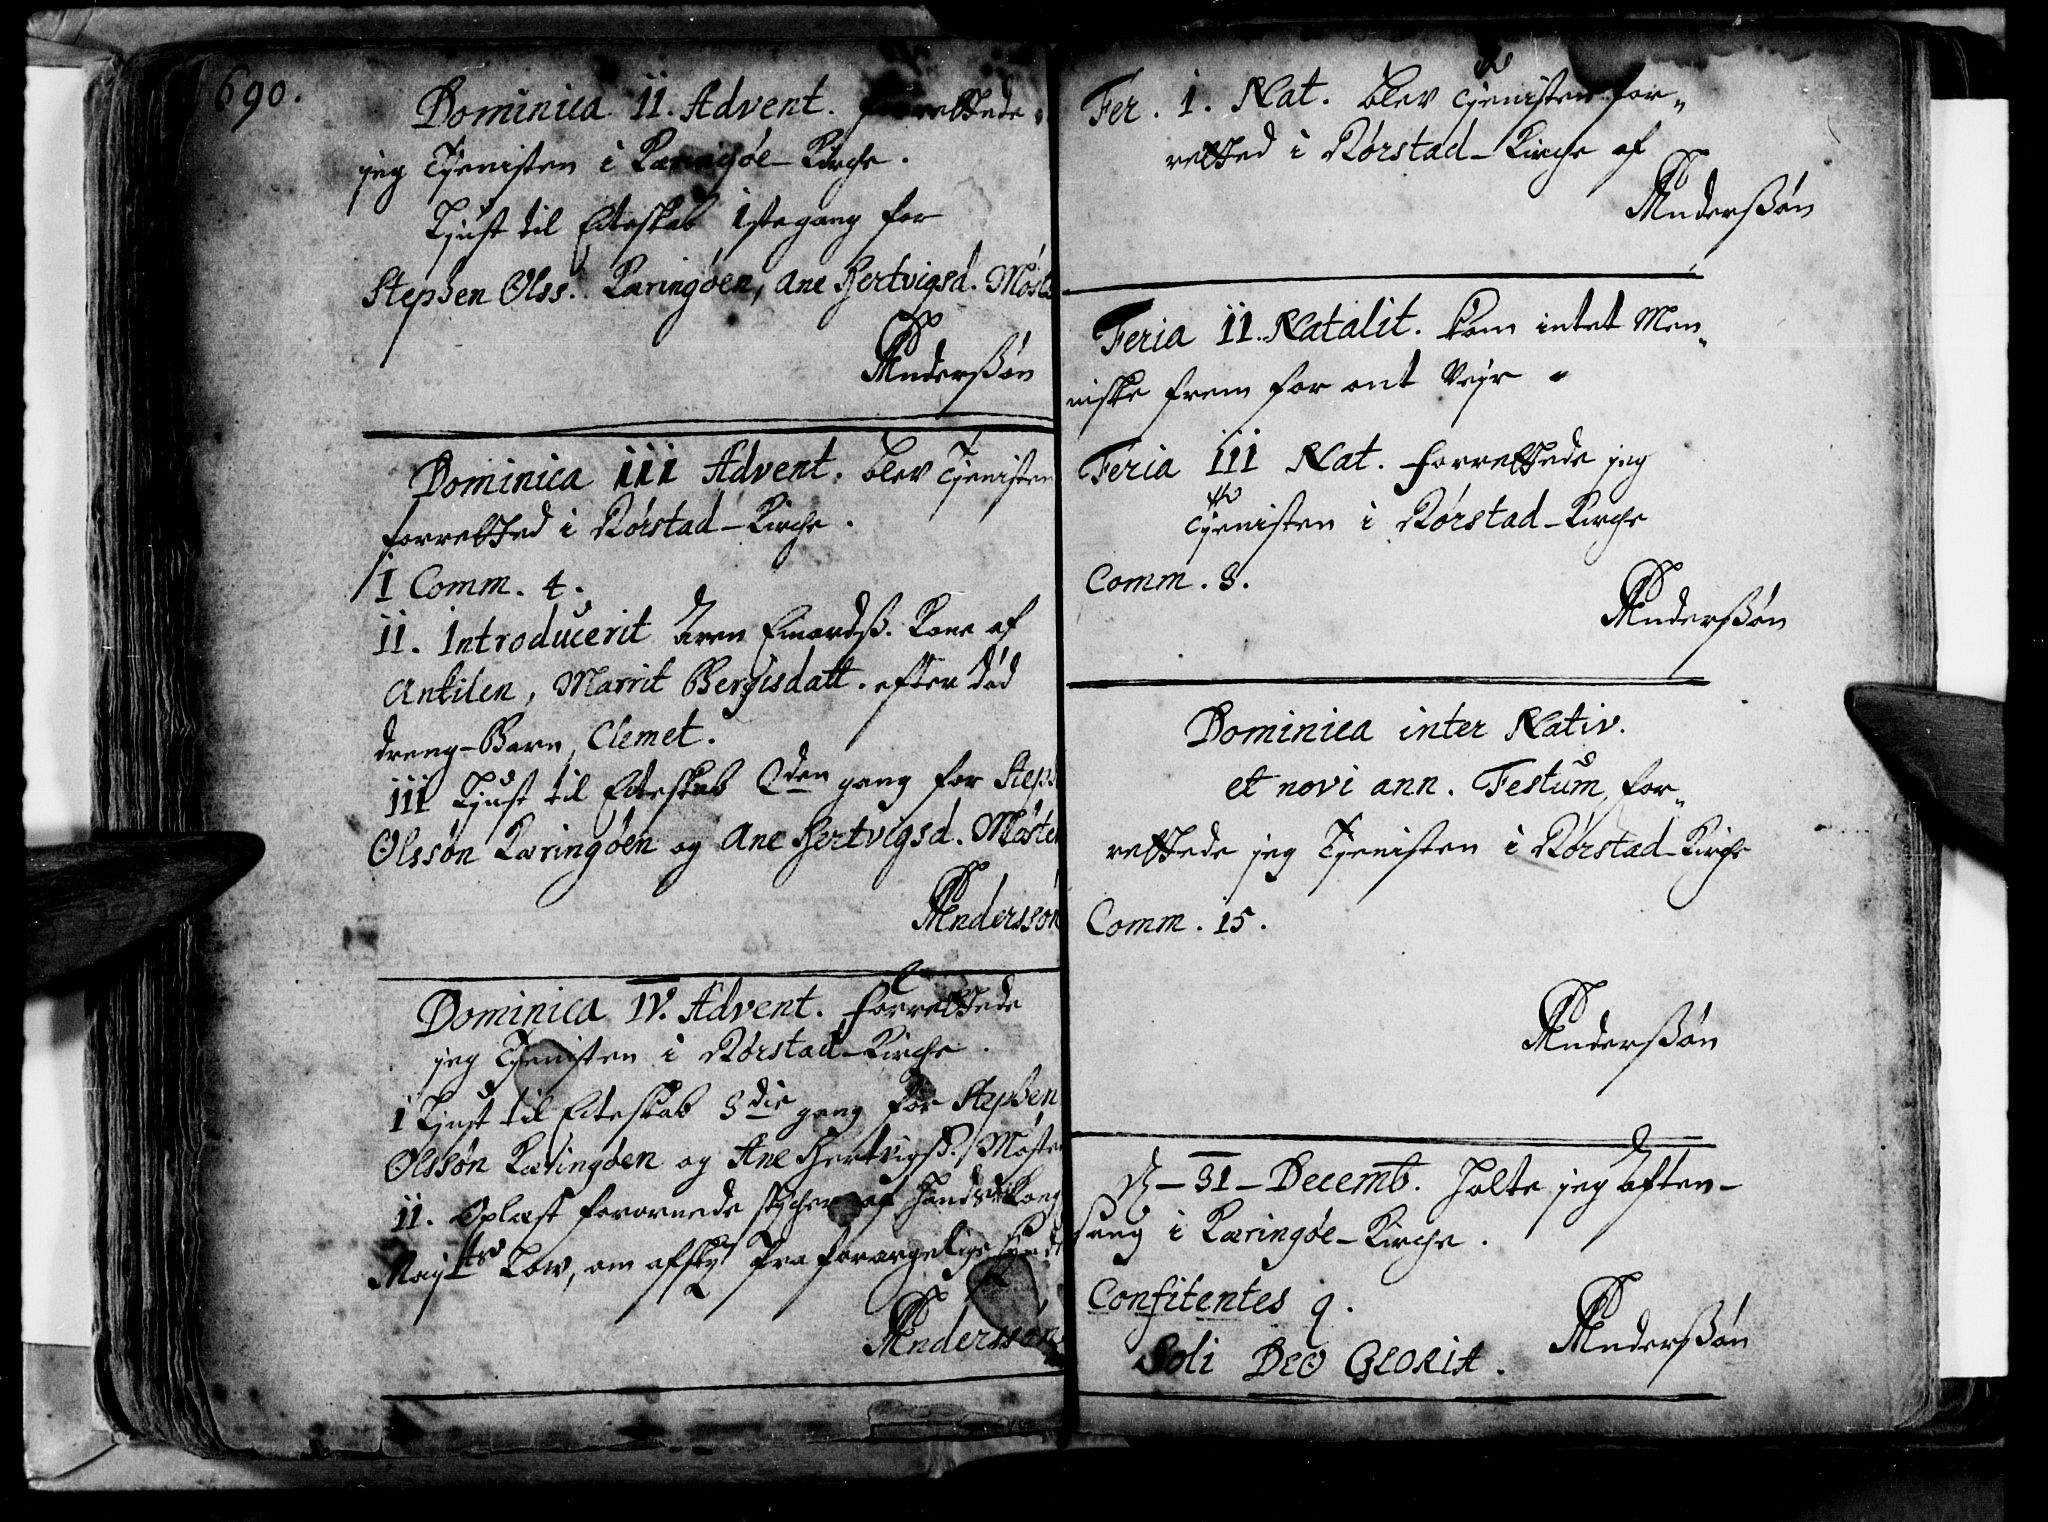 690.
Dominica II. Advent. forrettede
jeg Tjenisten i Kæringøe-Kirche.
Liust til Ecteskab 1ste gang for
Stephen Olss. Kæringøen, Ane Hertvigsd. Møste
Anderßøn
Dominica III Advent. blev Tjenisten
forretted i Rørstad-Kirche.
I Comm. 4.
II. Introducerit Kone af
Ankilen, Marrit efter død
dreng-Barn, Clemet.
III Liust til Ecteskab 2den gang for Steph
Olssøn Kæringøen og Ane Hertvigsd. Møsten
Anderssøn
Dominica IV. Advent. forrettede
jeg Tjenisten i Rørstad-Kirche.
I Liust til Ecteskab 3die gang for Stephen
Olssøn Kæringøen og Ane Hertvigsß. Møsten
II. Oplæst forornede stycher af Kong
Maytts Low, om afsky fra forargelige
Anderssøn
Fer. I. Nat. blev Tjenisten for-
retted i Rørstad-Kirche af
Anderßøn
Feria II. Natalit. kom intet Men-
niske frem for ont Vejr
Feria III Nat. forrettede jeg
Tjenisten i Rørstad-Kirche
Comm. 8.
Anderßøn
Dominica inter Nativ.
et novi ann. Festum, for-
rettede jeg Tjenisten i Rørstad-Kirche
Comm. 15.
Anderßøn
D - 31 - Decemb. holte jeg aften-
sang i Kæringøe-Kirche.
Confitentes 9.
Anderßøn
Soli DEO GLORIA.